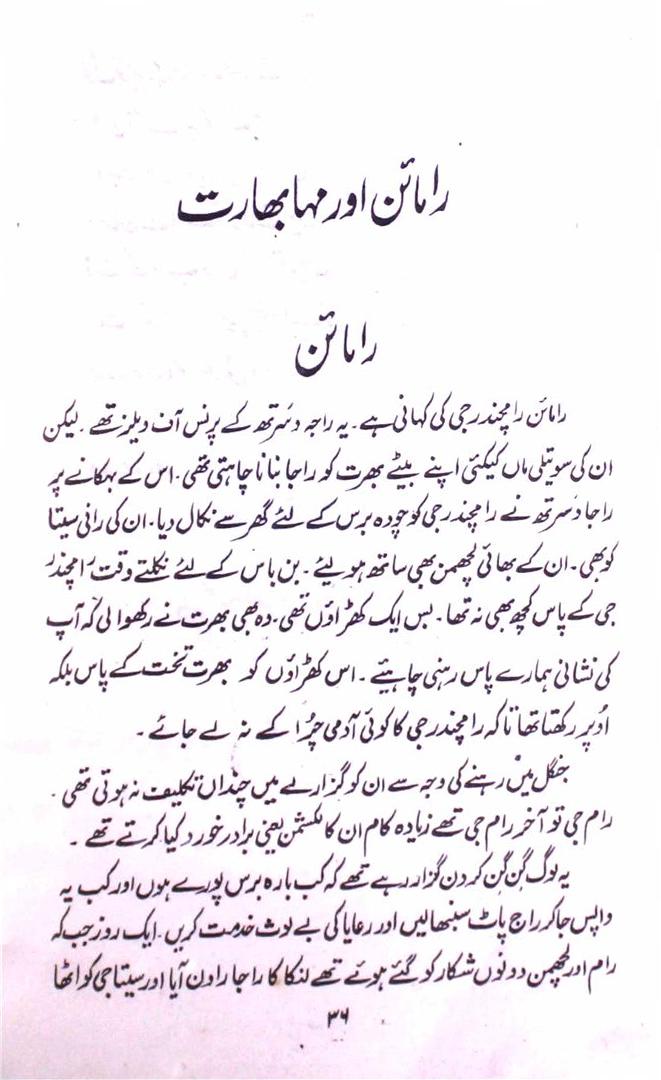 رامائن اور مہابھارت
رامائن
رامائن رامچندر جی کی کہانی ہے۔ یہ راجہ دسرتھ کے پرنس آف ویلز تھے۔ لیکن
ان کی سوتیلی ماں کیکئی اپنے بیٹے بھرت کو راجا بنانا چاہتی تھی۔ اس کے بہکانے پر
راجا دسرتھ نے رامچندر جی کو چودہ برس کے لئے گھر سے نکال دیا۔ ان کی رانی سیتا
کو بھی۔ ان کے بھائی لچھمن بھی ساتھ ہو لیئے۔ بن باس کے لئے نکلتے وقت رامچندر
جی کے پاس کچھ بھی نہ تھا۔ بس ایک کھڑاؤں تھی۔ وہ بھی بھرت نے رکھوا لی کہ آپ
کی نشانی ہمارے پاس رہنی چاہیئے۔ اس کھڑاؤں کو بھرت تخت کے پاس بلکہ
اُوپر رکھتا تھا تاکہ رامچندر جی کا کوئی آدمی چُرا کے نہ لے جائے۔
جنگل میں رہنے کی وجہ سے ان کو گزارے میں چنداں تکلیف نہ ہوتی تھی۔
رام جی تو آخر رام جی تھے زیادہ کام ان کا لکشمن یعنی برادر خورد کیا کرتے تھے۔
یہ لوگ گن گن کر دن گزار رہے تھے کہ کب بارہ برس پورے ہوں اور کب یہ
واپس جا کر راج پاٹ سنبھالیں اور رعایا کی بے لوث خدمت کریں۔ ایک روز جب کہ
رام اور لچھمن دونوں شکار کو گئے ہوئے تھے لنکا کا راجا راون آیا اور سیتا جی کو اٹھا
۳۶